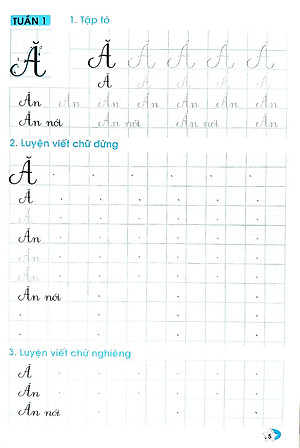 TUẦN 1 1. Tập tô
Ă Ă Ă Ă Ă Ă
Ă Ă Ă Ă Ă
Ăn Ăn Ăn Ăn Ăn Ăn Ăn
Ăn nói Ăn nói Ăn nói Ăn
2. Luyện viết chữ đứng
Ă
Ă
Ă
Ăn
Ăn
Ăn
Ăn nói
3. Luyện viết chữ nghiêng
Ă
Ăn
Ăn nói
5